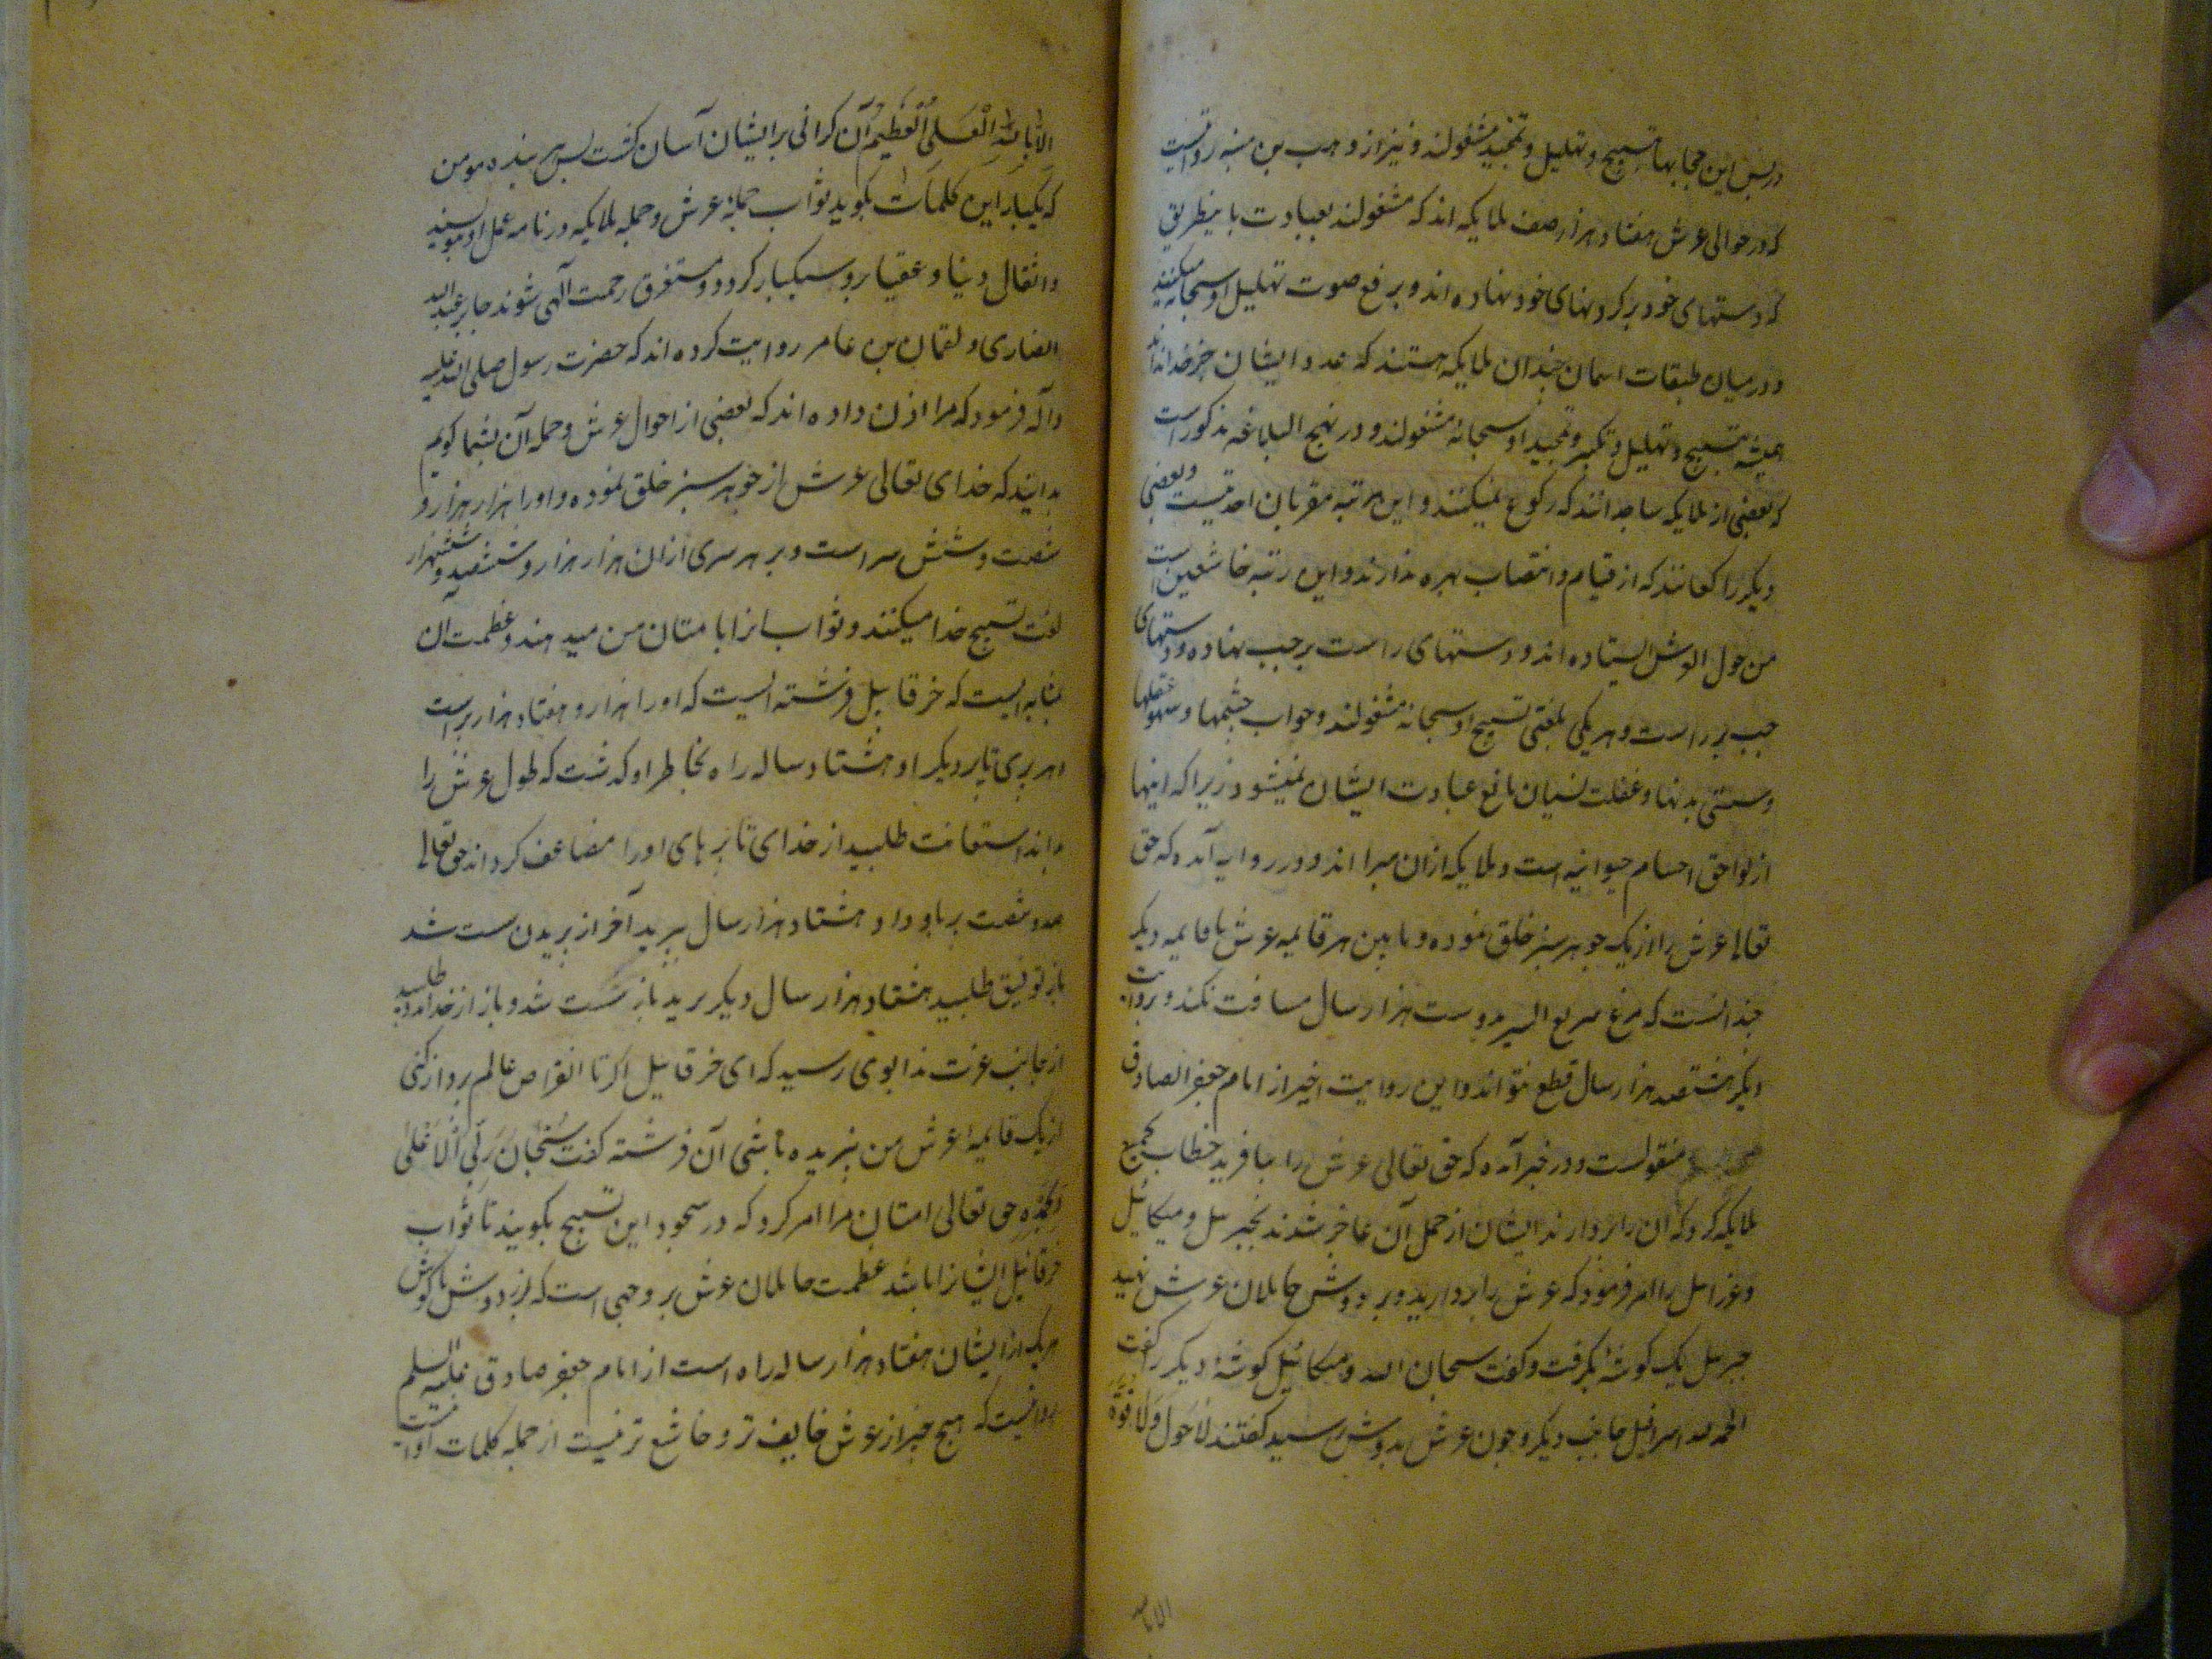 در پس این حجابها بتسبیح و تهلیل و تمجید مشغولند و نیز از وهب بن منبه روایتست
که در حوالی عرش هفتاد هزار صف ملایکه اند که مشغولند بعبادت باینطریق
که دستهای خود بر کردنهای خود نهاده اند و برفع صوت تهلیل او سبحانه میکنند
و در میان طبقات اسمان چندان ملایکه هستند که عدد ایشان جز خدا نداند
همیشه بتسبیح و تهلیل و تکبیر و تمجید او سبحانه مشغولند و در نهج البلاغه مذکور است
که بعضی از ملایکه ساجدانند که رکوع نمیکنند و این مرتبه مقربان احدیتست و بعضی
دیکر راکعانند که از قیام و انتصاب بهره ندارند و این رتبه خاشعین است
من حول العرش ایستاده اند و دستهای راست بر چپ نهاده و دستهای
چپ بر راست و هر یکی بلغتی تسبیح او سبحانه مشغولند و خواب چشمها و سهو عقلها
و سستی بدنها و غفلت نسیان مانع عبادت ایشان نمیشود زیرا که اینها
از لواحق اجسام حیوانیه است و ملایکه ازان مبرا اند و در روایه آمده که حق
تعالی عرش را از یک جوهر سبز خلق نموده و مابین هر قایمه عرش تا قایمه دیکر
چندانست که مرغ سریع السیر دویست هزار سال مسافت نکند و بروایت
دیکر هشتصد هزار سال قطع نتواند و این روایت اخیر از امام جعفر الصادق
منقولست و در خبر آمده که حق تعالی عرش را بیافرید خطاب بجمیع
ملایکه کرد که آن را بردارند ایشان از حمل آن عاجز شدند بجبرئیل و میکائیل
و عزرائیل را امر فرمود که عرش را بردارید و بر دوش حاملان عرش نهید
جبرئیل یک کوشه بکرفت و کفت سبحان الله و میکائیل کوشه دیکر را کفت
الحمد لله اسرافیل جانب دیکر و چون عرش بدوش رسید کفتند لا حول ولا قوة
الا با
الا بالله العلی العظیم آن کرانی بر ایشان آسان کشت پس هر بنده مومن
که یکبار این کلمات بکوید ثواب حمله عرش و جمله ملایکه در نامه عمل او بنویسند
و اثقال دنیا و عقبا برو سبکبار کردد و مستغرق رحمت آلهی شوند جابر عبد الله
انصاری و لقمان بن عامر روایت کرده اند که حضرت رسول صلی الله علیه
و آله فرمود که مرا اذن داده اند که بعضی از احوال عرش و حمله آن بشما کویم
بدانید که خدای تعالی عرش از جوهر سبز خلق نموده و او را هزار هزار و
شصت و شش سر است و بر هر سری ازان هزار هزار و ششصد و ششهزار
لغت تسبیح خدا میکنند و ثواب انرا با متان من میدهند و عظمت ان
بمثابه ایست که خرقابیل فرشته ایست که او را هزار و هفتاد هزار پر است
از هر پری تا پر دیکر او هشتاد ساله راه بخاطر او کذشت که طول عرش را
بداند استعانت طلبید از خدای تا پرهای او را مضاعف کرداند حق تعالی
صد و شصت پر باو داد و هشتاد هزار سال بپرید آخر از پریدن سست شد
باز توفیق طلبید هشتاد هزار سال دیکر پرید باز سست شد و باز از خدا مدد طلبید
از جانب عزت ندا بوی رسید که ای خرقائیل اکر تا انقراض عالم پرواز کنی
از یک قایمه عرش من نپریده باشی آن فرشته کفت سبحان ربی الاعلی
و بحمده حق تعالی امتان مرا امر کرد که در سجود این تسبیح بکویند تا ثواب
خرقائیل ایشانرا باشد عظمت حاملان عرش بر وجهی است که از دوش تا کوش
هر یک از ایشان هفتاد هزار ساله راه است از امام جعفر صادق علیه السلم
روایتست که هیچ چیز از عرش خایف تر و خاشع تر نیست از جمله کلمات او است